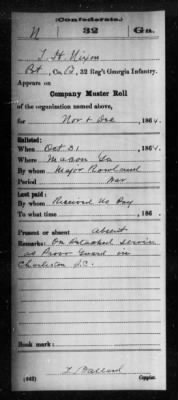 (Confederate.)
N 32 Ga.
T. H. Nixon
Pvt, Co. 32 Reg't Georgia Infantry.
Appears on
Company Muster Roll
of the organization named above,
for Nov & Dec, 1864.
Enlisted:
When Oct 31, 1864.
Where Macon Ga
By whom Major Rowland
Period War
Last paid:
By whom Received No Pay
To what time , 186 .
Present or absent absent
Remarks: On detached service
as Provo Guard in
Charleston S.C.
Book mark:
(642) Copyist.